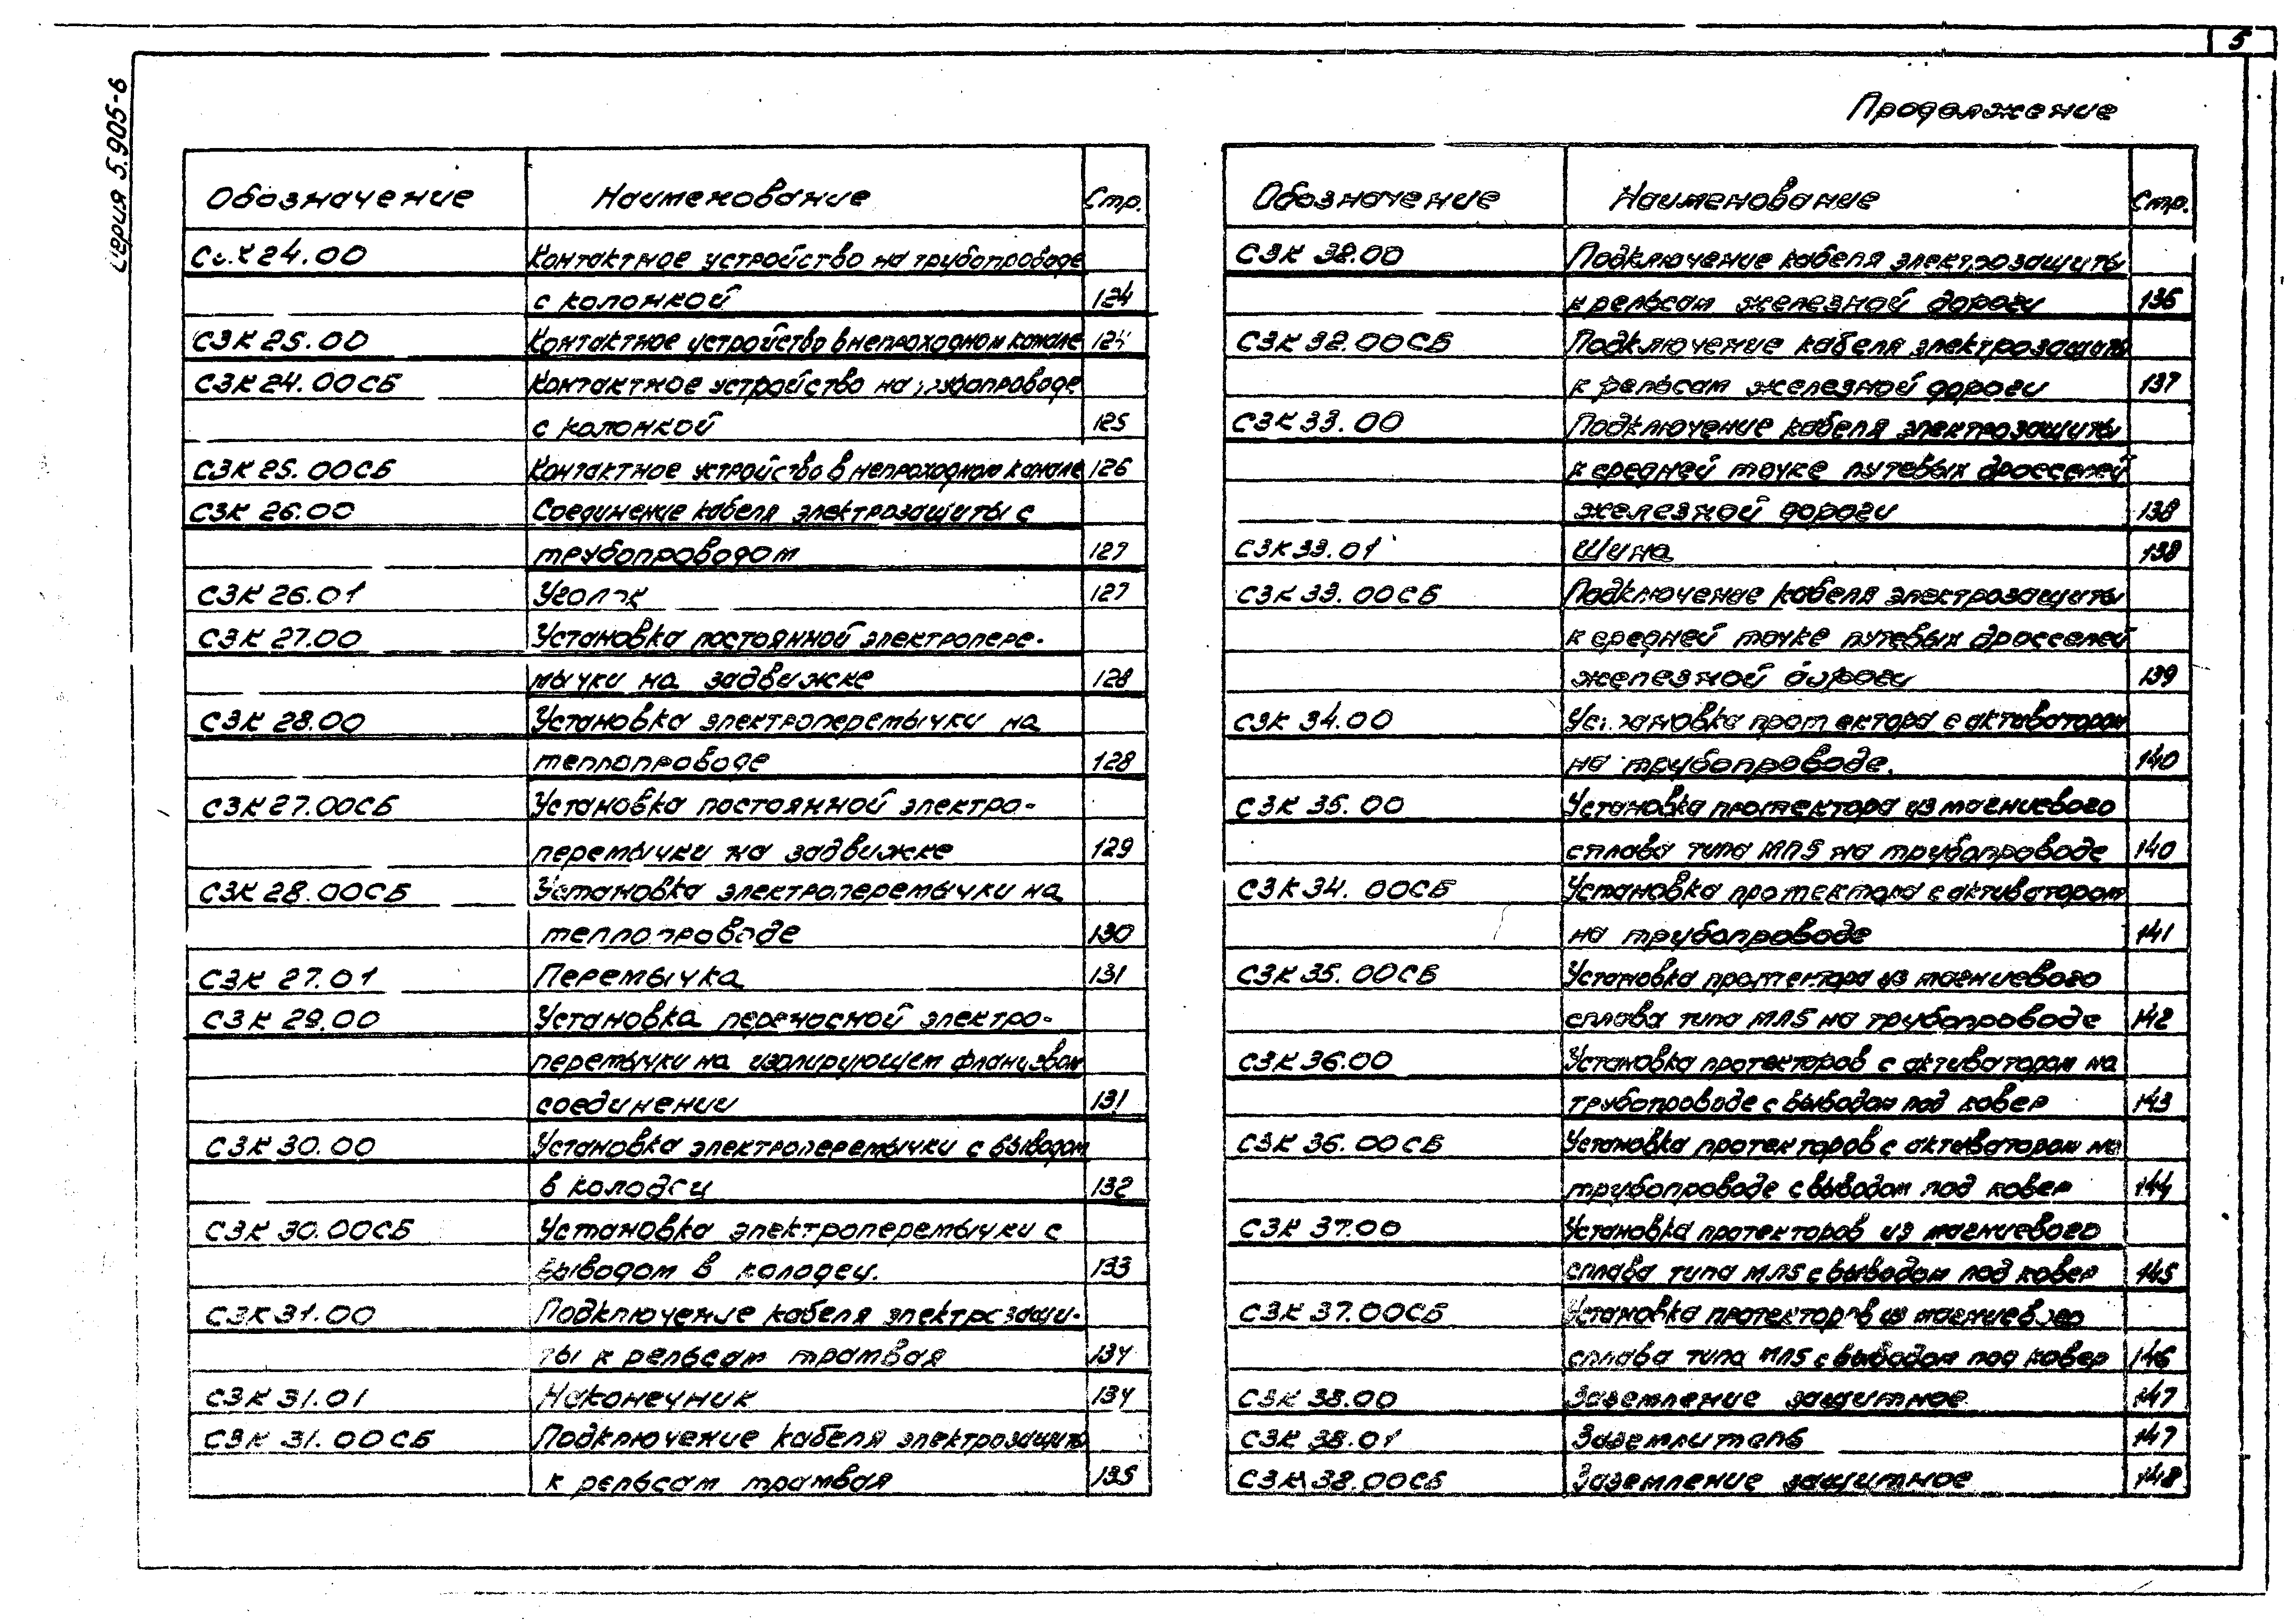 5
Серия 5.905-6
Продолжение
Обозначение Наименование Стр.
24.00 Контактное устройство на трубопроводе
с колонкой 124
СЗК 25.00 Контактное устройство в непроходном канале 124
СЗК 24.00СБ Контактное устройство на трубопроводе
с колонкой 125
СЗК 25.00СБ Контактное устройство в непроходном канале 126
СЗК 26.00 Соединение кабеля электрозащиты с
трубопроводом 127
СЗК 26.01 Уголок 127
СЗК 27.00 Установка постоянной электропере-
мычки на задвижке 128
СЗК 28.00 Установка электроперемычки на
теплопроводе 128
СЗК 27.00СБ Установка постоянной электро-
перемычки на задвижке 129
СЗК 28.00СБ Установка электроперемычки на
теплопроводе 130
СЗК 27.01 Перемычка 131
СЗК 29.00 Установка переносной электро-
перемычки на изолирующем фланцевом
соединении 131
СЗК 30.00 Установка электроперемычки с выводом
в колодец 132
СЗК 30.00СБ Установка электроперемычки с
выводом в колодец. 133
СЗК 31.00 Подключение кабеля электрозащи-
ты к рельсам трамвая 134
СЗК 31.01 Наконечник 134
СЗК 31.00СБ Подключение кабеля электрозащиты
к рельсам трамвая 135
Обозначение Наименование Стр.
СЗК 32.00 Подключение кабеля электрозащиты
к рельсам железной дороги 136
СЗК 32.00СБ Подключение кабеля электрозащиты
к рельсам железной дороги 137
СЗК 33.00 Подключение кабеля электрозащиты
к средней точке путевых дросселей
железной дороги 138
СЗК 33.01 Шина 138
СЗК 33.00СБ Подключение кабеля электрозащиты
к средней точке путевых дросселей
железной дороги 139
СЗК 34.00 Установка протектора с активатором
на трубопроводе. 140
СЗК 35.00 Установка протектора из магниевого
сплава типа МЛ5 на трубопроводе 140
СЗК 34.00СБ Установка протектора с активатором
на трубопроводе 141
СЗК 35.00СБ Установка протектора из магниевого
сплава типа МЛ5 на трубопроводе 142
СЗК 36.00 Установка протекторов с активатором на
трубопроводе с выводом под ковер 143
СЗК 36.00СБ Установка протекторов с активатором на
трубопроводе с выводом под ковер 144
СЗК 37.00 Установка протекторов из магниевого
сплава типа МЛ5 с выводом под ковер 145
СЗК 37.00СБ Установка протекторов из магниевого
сплава типа МЛ5 с выводом под ковер 146
СЗК 38.00 Заземление защитное 147
СЗК 38.01 Заземлитель 147
СЗК 38.00СБ Заземление защитное 148